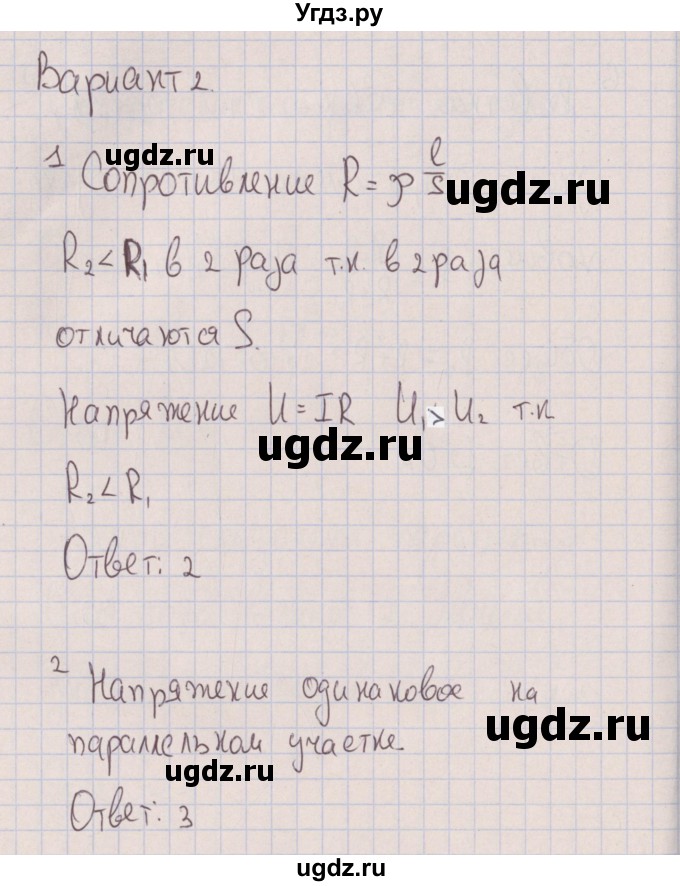 Угдз.ру
Вариант 2.
ugdz.ru
1 Сопротивление R = ρ l/S
ugdz.ru
R₂ < R₁ в 2 раза т.к. в 2 раза
отличаются S.
Напряжение U = IR U₁ > U₂ т.к
ugdz.ru
R₂ < R₁
Ответ: 2
2 Напряжение одинаковое на
ugdz.ru
параллельном участке.
ugdz.ru
Ответ: 3
ugdz.ru